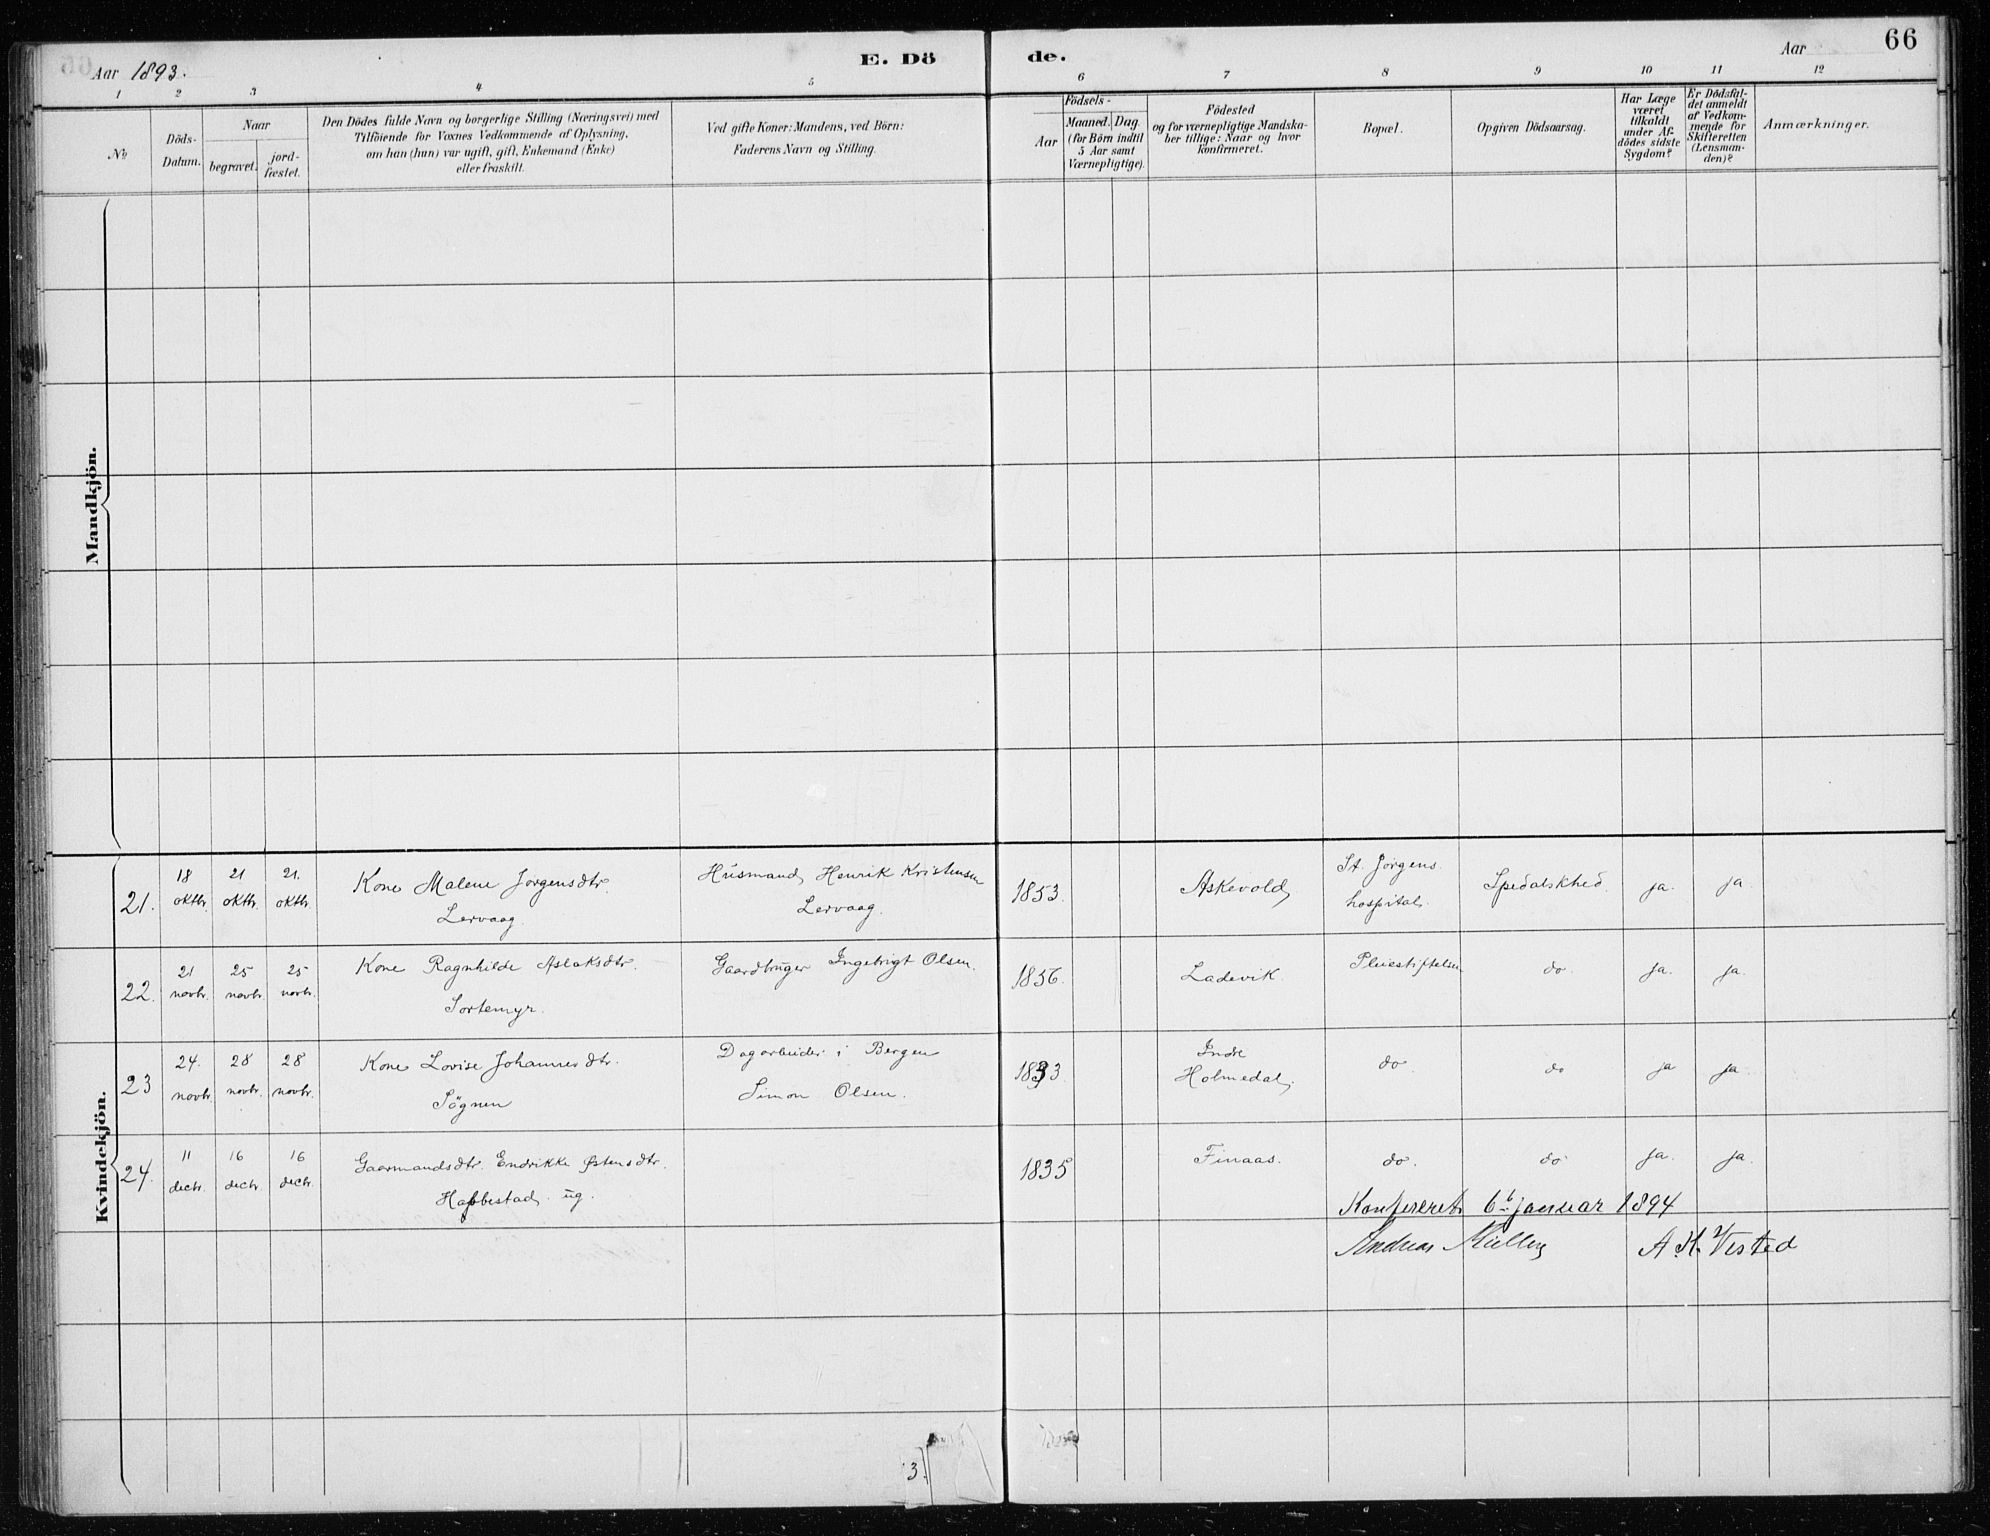 Aar 1893.
E. Dö
de.
Aar
66
1 2 3 4 5 6 7 8 9 10 11 12
No
Döds-
Datum.
Naar
begravet.
jord-
fæstet.
Den Dödes fulde Navn og borgerlige Stilling (Næringsvei) med
Tilföiende for Voxnes Vedkommende af Oplysning,
om han (hun) var ugift, gift, Enkemand (Enke)
eller fraskilt.
Ved gifte Koner: Mandens, ved Börn:
Faderens Navn og Stilling.
Födsels-
Aar
Maaned. Dag.
(for Börn indtil
5 Aar samt
Værnepligtige).
Födested
og for værnepligtige Mandska-
ber tillige: Naar og hvor
konfirmeret.
Bopæl.
Opgiven Dödsaarsag.
Har Læge
været
tilkaldt
under Af-
dödes sidste
Sygdom?
Er Dödsfal-
det anmeldt
af Vedkom-
mende for
Skifteretten
(Lensman-
den)?
Anmærkninger.
Mandkjön.
Kvindekjön.
21. 18 oktbr. 21 oktbr. 21. oktbr. Kone Malene Jorgensdtr. Lervaag. Husmand Henrik Kristensen Lervaag. 1853. Askevold St. Jorgens hospital. Spedalskhed. ja. ja
22. 21 novbr. 25 novbr. 25 novbr. Kone Ragnhilde Aslaksdtr. Sortemyr. Gaardbruger Ingebrigt Olsen. 1856. Ladevik. Pleiestiftelsen do. ja. ja.
23 24. novbr. 28 novbr. 28 novbr. Kone Lovise Johannesdtr. Sögnen Dagarbeider i Bergen Simon Olsen. 1833. Indre Holmedal. do. do ja ja.
24. 11 decbr. 16 decbr. 16 decbr. Gaarmandsdtr. Endrikke Østensdtr. Habbestad. ug. 1835 Finaas. do. do ja. ja.
Konfereret 6te januar 1894
Andreas Müller A. K. Vested
3.